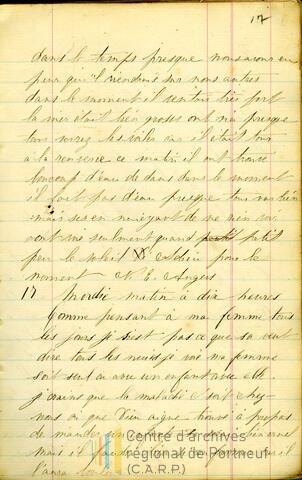 17
dans le temps presque nous avons eu
peur qu'il viendrait sur nous autres
dans le moment il ventais très fort
la mer était bien grosses ont na presque
tous les voiles car il était tous
à la renverse ce matin il ont trouvé
boucoup d'eau de dans dans le moment
il fait pas d'eau presque tous
mais
vont vie seulment quand petit
peu le soleil Adieu pour le
moment N. E. Angers
17 Mardie matin à dix heures
Comme pensant à ma femme tous
les jours je s'est pas ce que sa veut
dire tous les neuis je voie ma femme
soit seul ou avec un enfant avec elle
je crains que la maladie soit chez
nous ou que Dieu aigne trouvé à propos
de mander un
mais il faudra
l'aura
Centre d'archives
régional de Portneuf
(C.A.R.P.)